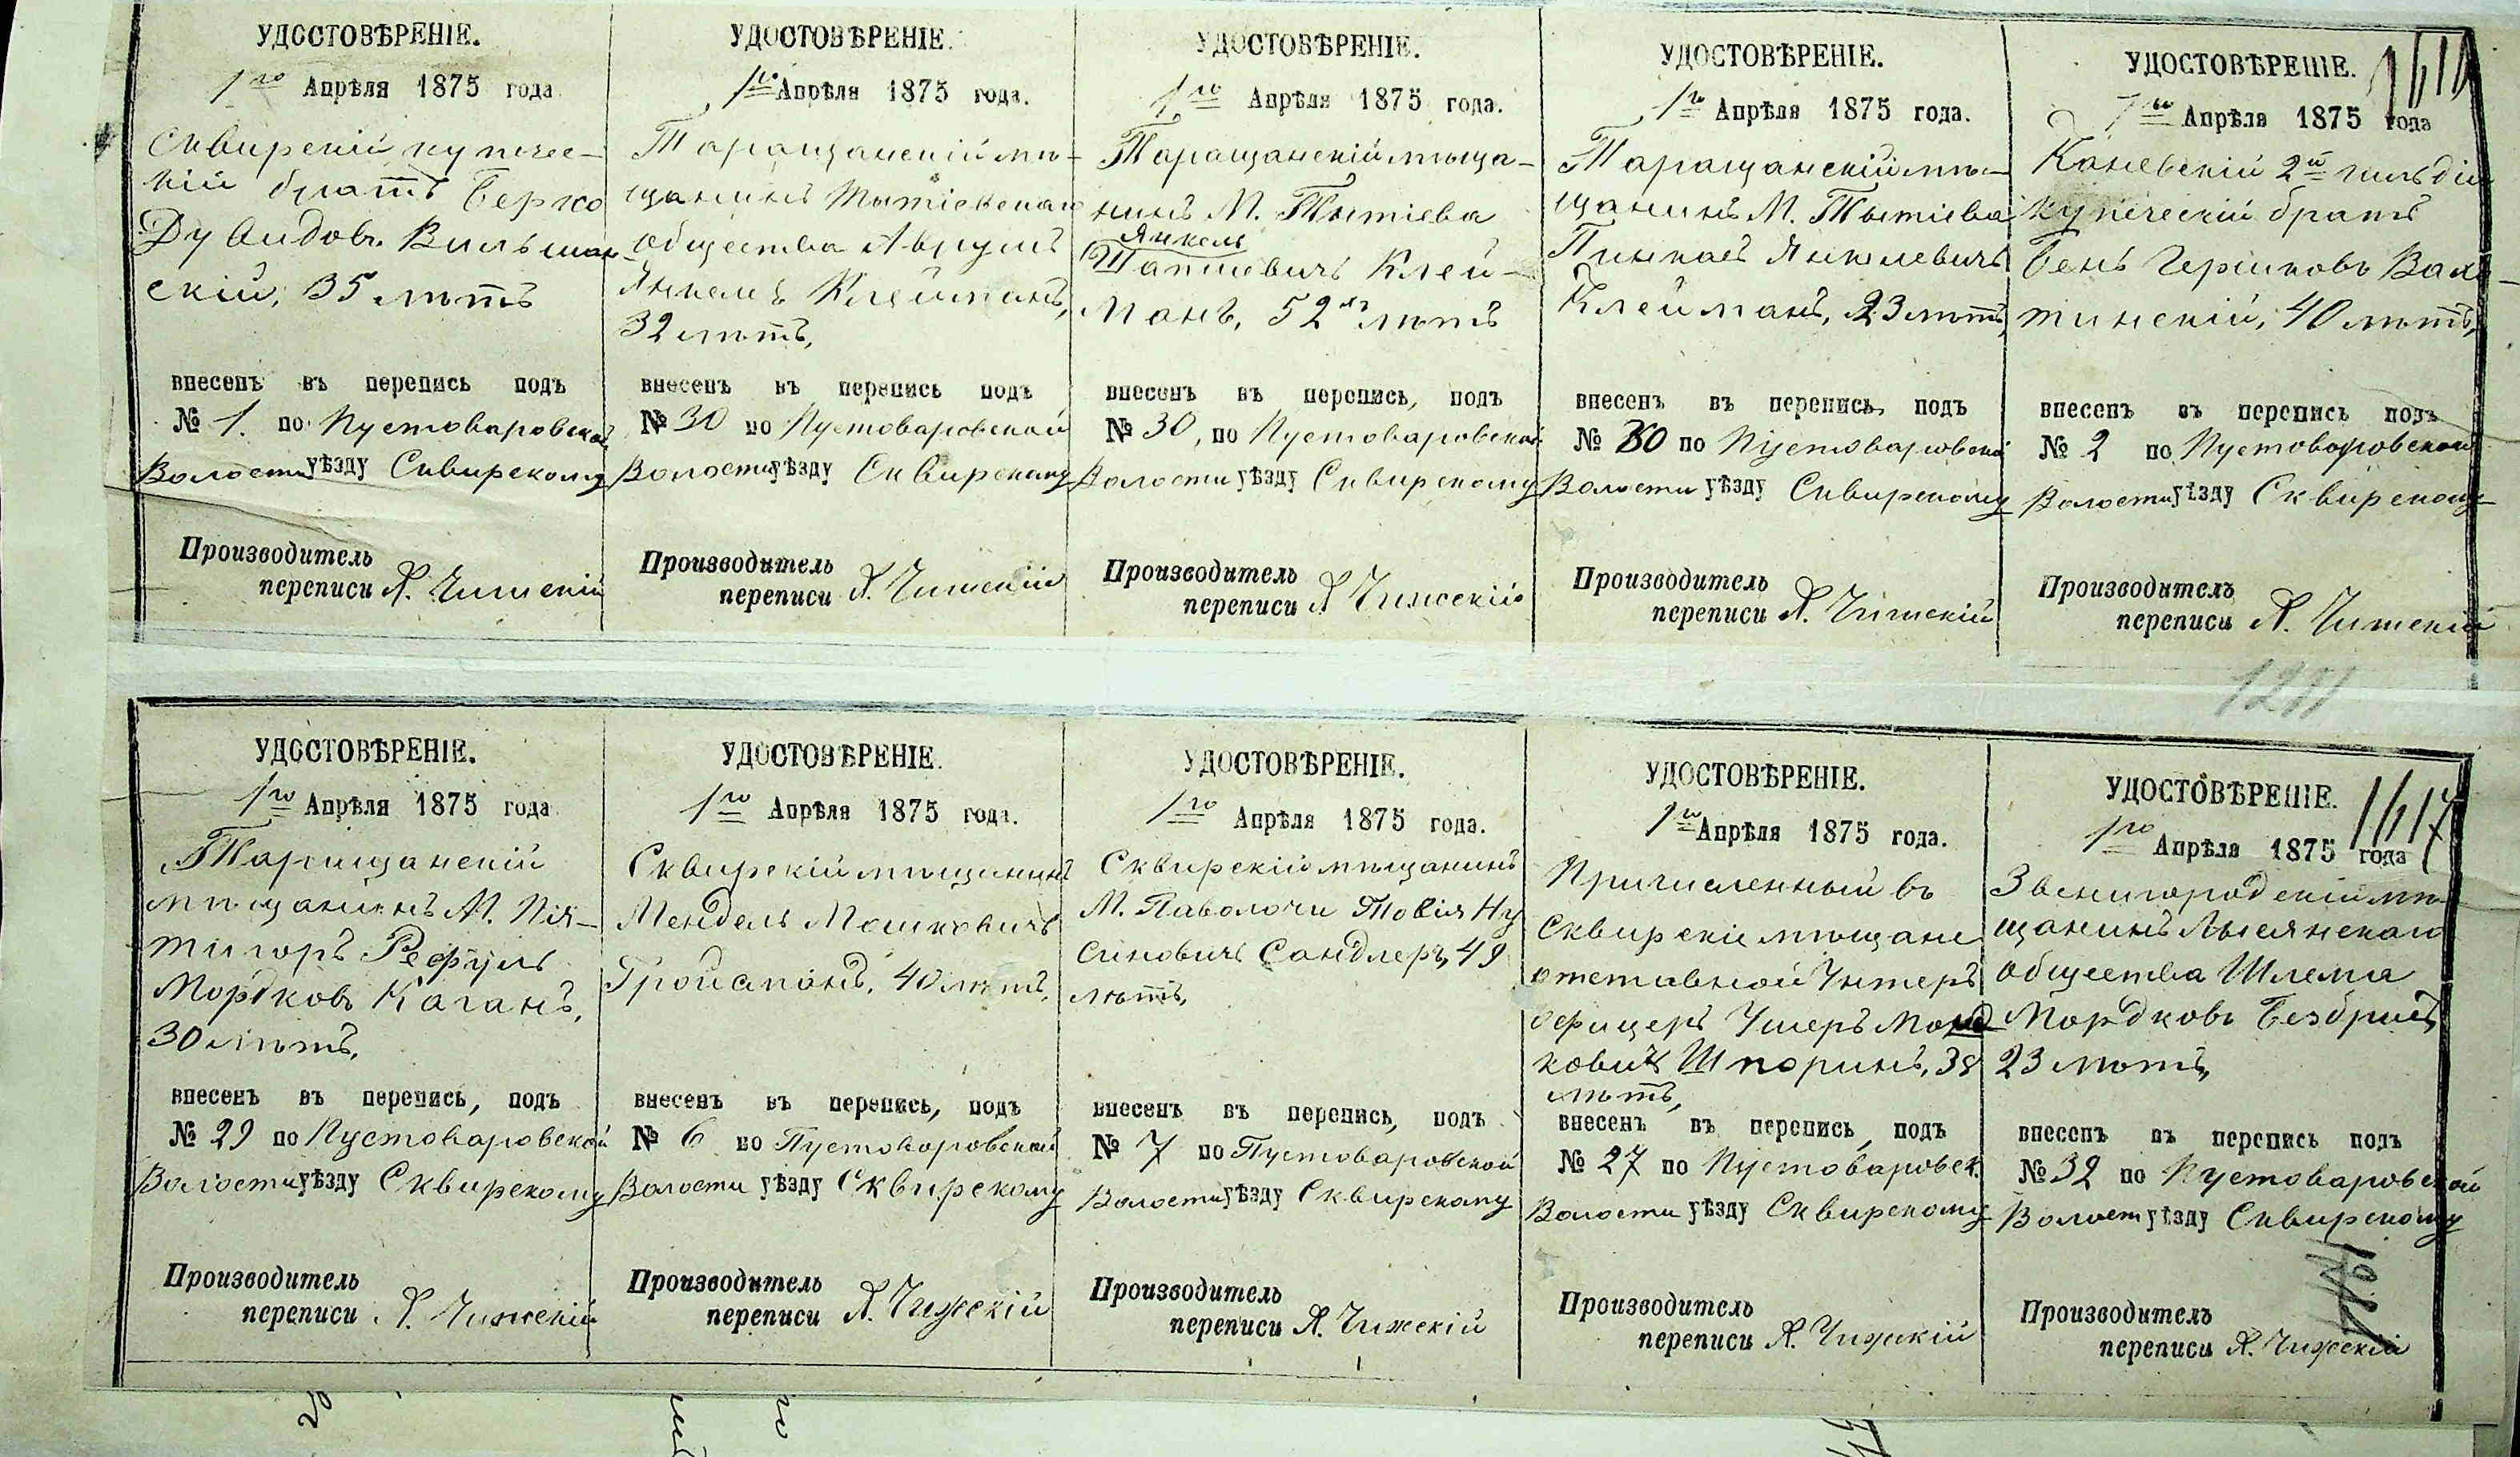 УДОСТОВѢРЕНІЕ.
1го Апрѣля 1875 года
Сквирскій купечес-
кій братъ Берко
Дувидовъ Вильшан-
скій, 35 лѣтъ
внесенъ въ перепись подъ
№ 1. по Пустоваровской
Волости уѣзду Сквирскому
Производитель
переписи Я. Чижскій
УДОСТОВѢРЕНІЕ.
1го Апрѣля 1875 года.
Таращанскій мѣ-
щанинъ Тытіевскаго
общества Аврумъ
Янкелъ Клейманъ,
32 лѣтъ,
внесенъ въ перепись подъ
№ 30 по Пустоваровской
Волости уѣзду Сквирскому
Производитель
переписи Я. Чижскій
УДОСТОВѢРЕНІЕ.
1го Апрѣля 1875 года.
Таращанскій мѣща-
нинъ М. Тытіева
Янкель
Клей-
манъ, 52 лѣтъ
внесенъ въ перепись, подъ
№ 30, по Пустоваровской
Волости уѣзду Сквирскому
Производитель
переписи Я Чижскій
УДОСТОВѢРЕНІЕ.
1го Апрѣля 1875 года.
Таращанскій мѣ-
щанинъ М. Тытіева
Пинкасъ Янкелевичъ
Клейманъ, 23 лѣтъ,
внесенъ въ перепись, подъ
№ 30 по Пустоваровской
Волости уѣзду Сквирскому
Производитель
переписи Я. Чижскій
УДОСТОВѢРЕНІЕ.
1го Апрѣля 1875 года
Каневскій 2й гильдіи
купеческій братъ
Бень Гершковъ Вах-
тинскій, 40 лѣтъ,
внесенъ въ перепись подъ
№ 2 по Пустоваровской
Волости уѣзду Сквирскому
Производитель
переписи Я. Чижскій
1211
УДОСТОВѢРЕНІЕ.
1го Апрѣля 1875 года
Таращанскій
мѣщанинъ М. Пя-
тигоръ Рефулъ
Мордковъ Каганъ,
30 лѣтъ,
внесенъ въ перепись, подъ
№ 29 по Пустоваровской
Волости уѣзду Сквирскому
Производитель
переписи Я. Чижскій
УДОСТОВѢРЕНІЕ.
1го Апрѣля 1875 года.
Сквирскій мѣщанинъ
Мендель Мошковичъ
Гройсманъ, 40 лѣтъ,
внесенъ въ перепись, подъ
№ 6 по Пустоваровской
Волости уѣзду Сквирскому
Производитель
переписи Я. Чижскій
УДОСТОВѢРЕНІЕ.
1го Апрѣля 1875 года.
Сквирскій мѣщанинъ
М. Паволочи Товія Ну
синовичъ Сандлеръ, 49
лѣтъ,
внесенъ въ перепись, подъ
№ 7 по Пустоваровской
Волости уѣзду Сквирскому
Производитель
переписи Я. Чижскій
УДОСТОВѢРЕНІЕ.
1го Апрѣля 1875 года.
Причисленный въ
Сквирскіе мѣщане
отставной Унтеръ
офицеръ Ушеръ Морд
ковичъ Шпоринъ, 38
лѣтъ,
внесенъ въ перепись, подъ
№ 27 по Пустоваровск.
Волости уѣзду Сквирскому
Производитель
переписи Я. Чижскій
УДОСТОВѢРЕНІЕ.
1617
1го Апрѣля 1875 года
Звенигородскій мѣ-
щанинъ Лысянскаго
общества Шлема
Мордковъ Безбридъ
23 лѣтъ,
внесенъ въ перепись подъ
№ 32 по Пустоваровской
Волости уѣзду Сквирскому
Производитель
переписи Я. Чижскій